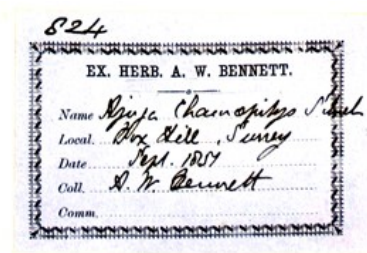 824
EX. HERB. A. W. BENNETT.
Name Ajuga Chamaepitys
Local. Box Hill, Surrey
Date Sept. 1857
Coll. A. W. Bennett
Comm.